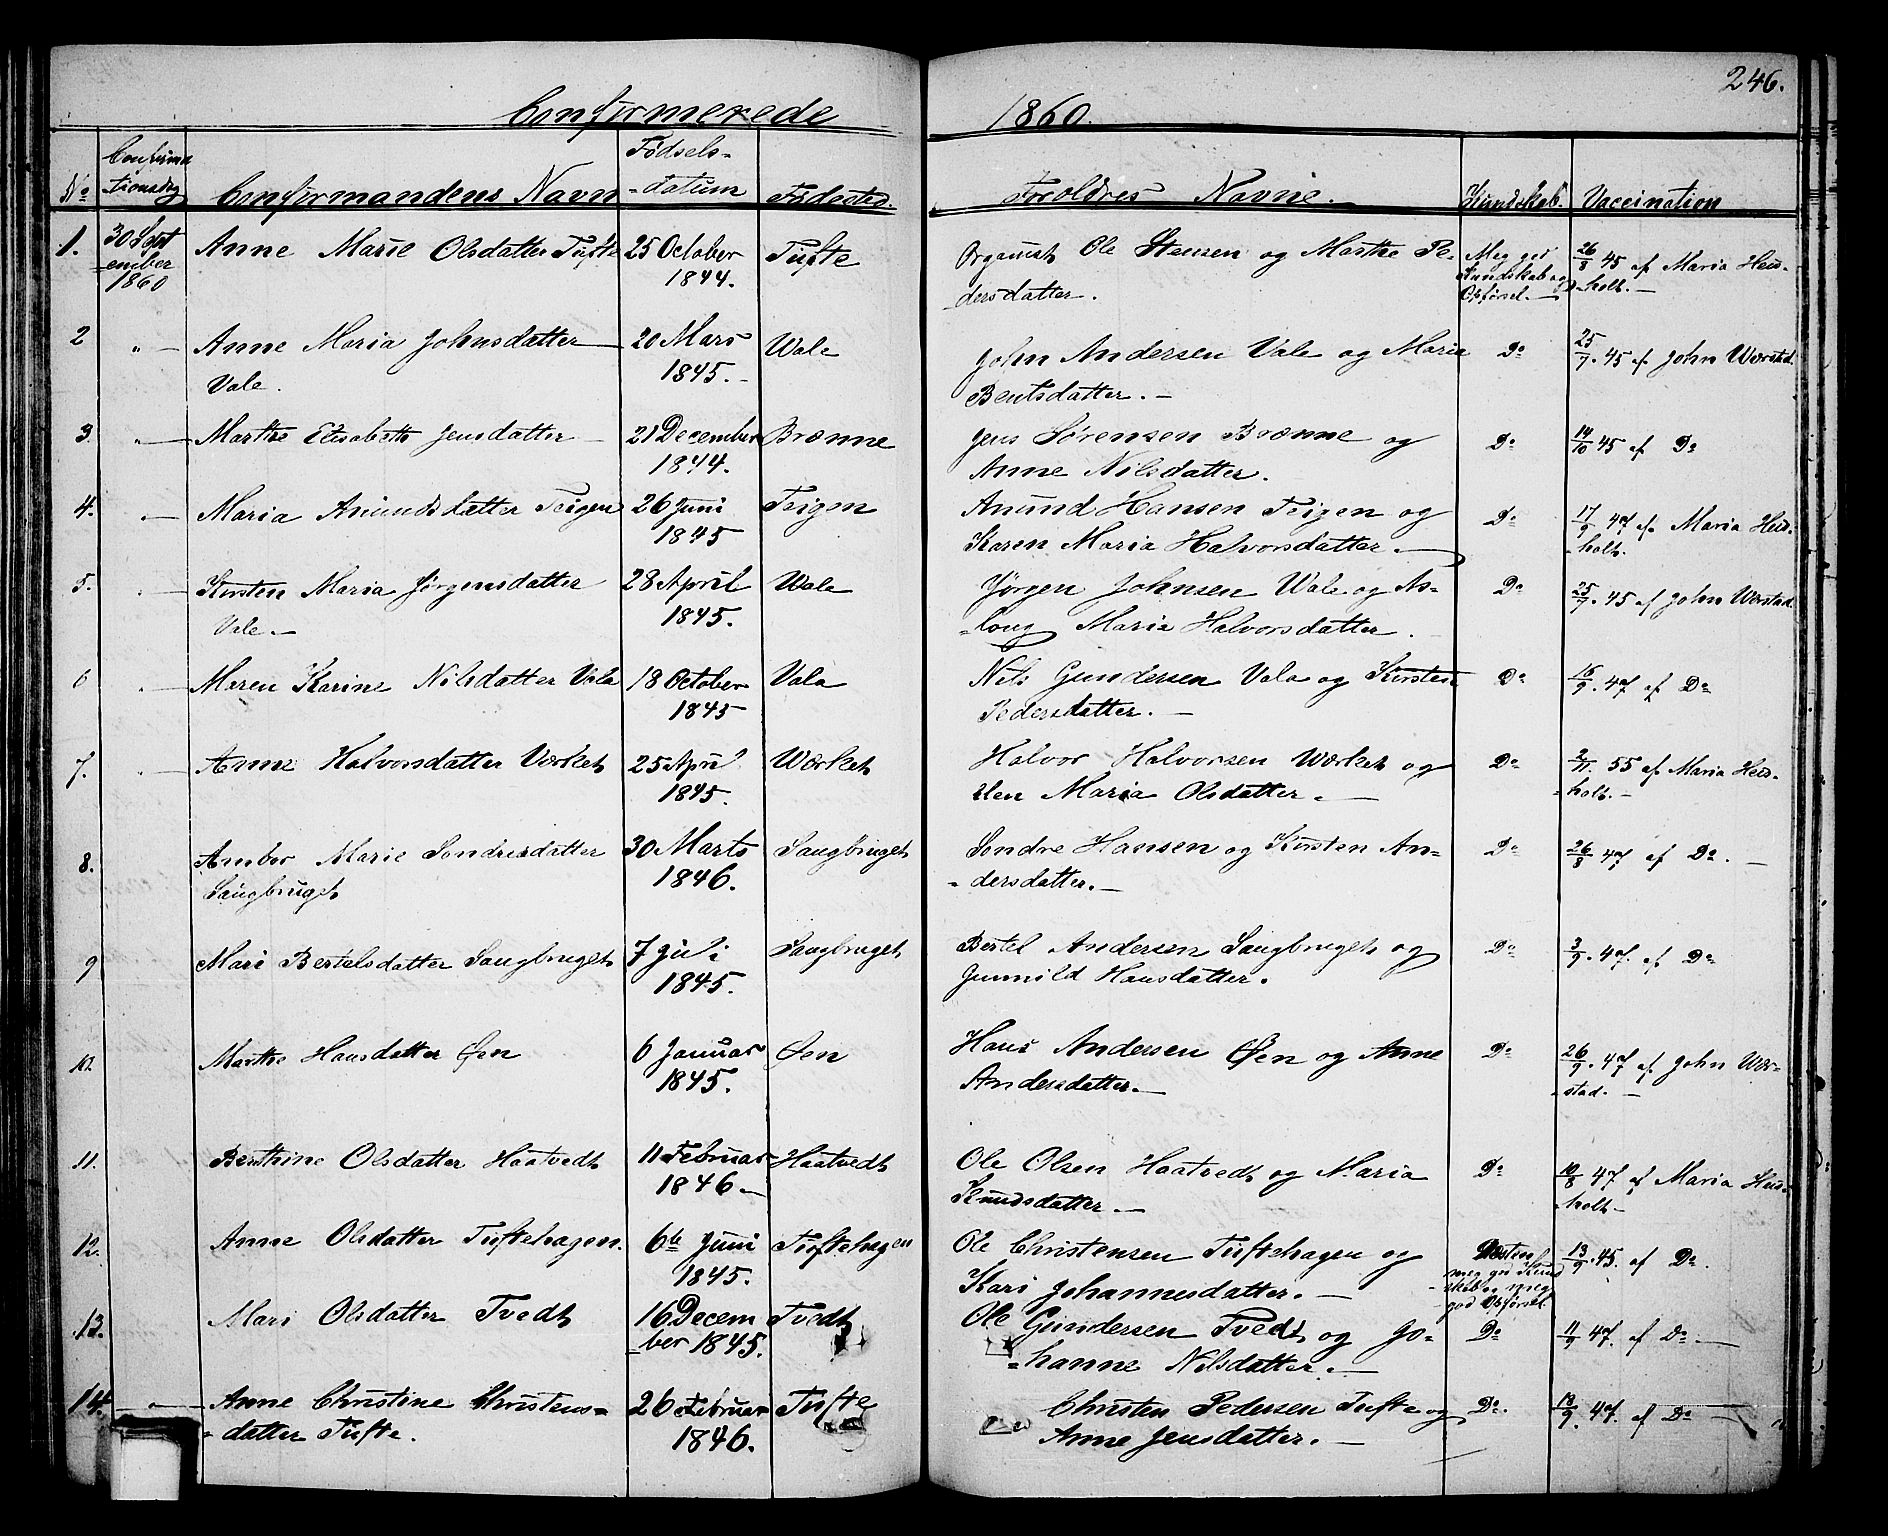 246.
Confirmerede 1860.
No Confirma-tionsdag Confirmandens Navn Fødsels-datum Fødested. Foroldres Navne. Kundskab Vaccination
1. 30 Sept Anne Marie Olsdatter Tufte 25 October Tufte Organist Ole Stensen og Marthe Pe- Meg god 26/8 45 af Maria Heis-
-ember 1844. -dersdatter. Kundskab og -holt.-
1860 Opførsel.-
2 " - Anne Maria Johnsdatter 20 Mars Wale John Andersen Vale og Maria Do 25/7. 45 af John Wærstad.
Vale. 1845.- Bentsdatter.-
3. " - Marthe Elisabeth Jensdatter - 21 December Brænne Jens Sørensen Brænne og Do 14/10 45 af Do
1844. Anne Nilsdatter.
4. " - Maria Anundsdatter Teigen 26 Juni Teigen Anund Hansen Teigen og Do 17/9 47 af Maria Heis-
1845 Karen Maria Halvorsdatter.- -holt.
5. " - Kirsten Maria Jørgensdatter 28 April Wale Jørgen Johnsen Wale og As- Do 25/7. 45 af John Wærstad.
Vale.- 1845. -loug Maria Halvorsdatter.
6 " - Maren Karine Nilsdatter Vala 18 October Vala Nils Gundersen Vala og Kirsten Do 16/9. 47 af Do
1845 Pedersdatter.-
7. " - Anne Halvorsdatter Værket 25 April Wærket Halvor Halvorsen Wærket og Do 2/11. 55 af Maria Heis-
1845. Elen Maria Olsdatter.- -holt.-
8. Ambor Marie Sondresdatter 30 Marts Saugbruget Sondre Hansen og Kirsten An- Do 26/8 47 af Do.-
Saugbruget 1846. -dersdatter.-
9 Mari Bertelsdatter Saugbruget 7 Juli Saugbruget Bertel Andersen Saugbruget og Do 3/9. 47. af Do
1845. Gunnild Hansdatter.
10. Marthe Hansdatter Øen 6 Januar Øen Hans Andersen Øen og Anne Do 26/9. 47 af John Wær-
1845. Andersdatter.- -stad.-
11. Berthine Olsdatter Haatvedt 11 Februar Haatvedt Ole Olsen Haatvedt og Maria Do 10/8 47 af Maria Heis-
1846.- Knudsdatter.- -holt-
12. Anne Olsdatter Tuftehagen. 6te Juni Tuftehagen Ole Christensen Tuftehagen og Næsten 13/9. 45. af Do.
1845. Kari Johannesdatter.- meg god Kund
-skab og meg
-god Opførsel
13. Mari Olsdatter Tvedt 16 Decem Tvedt Ole Gundersen Tvedt og Jo- Do 11/9 47. af Do.-
-ber 1845. -hanne Nilsdatter.-
14. " - Anne Christine Christens- 26 Februar Tufte Christen Pedersen Tufte og Do. 12/9. 47. af Do -
-datter Tufte. 1846. Anne Jensdatter.-